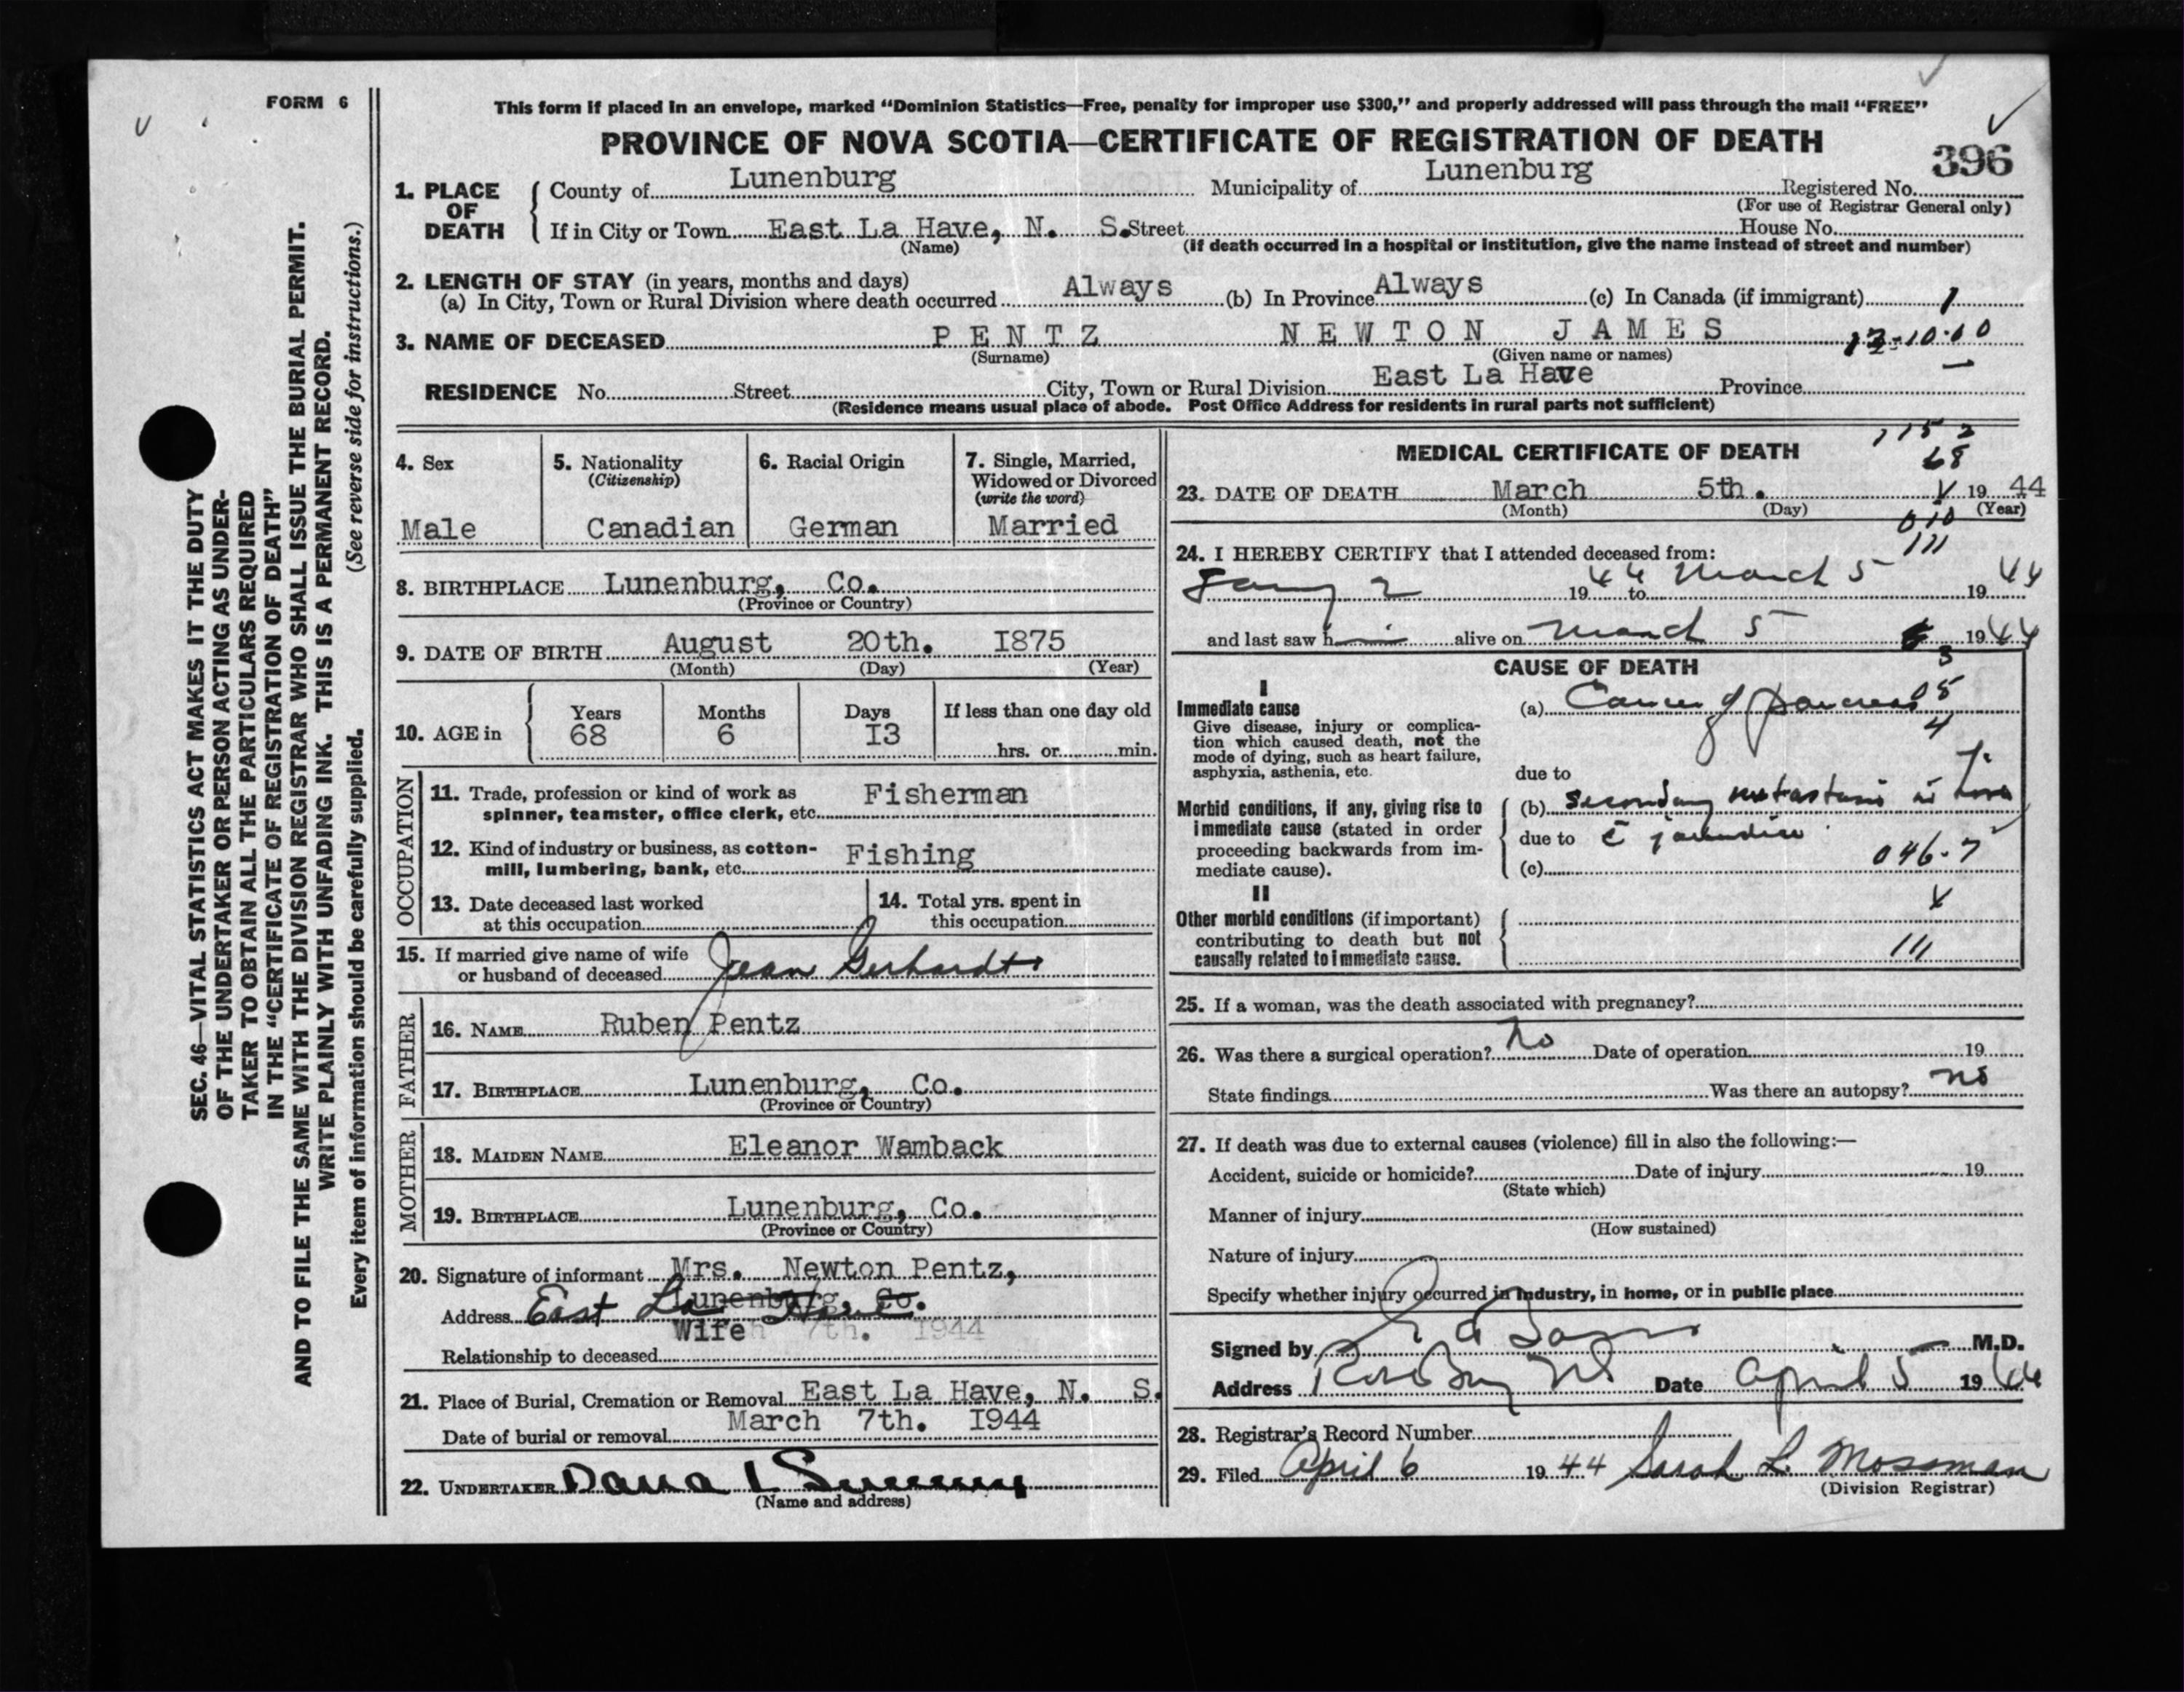 FORM 6
This form if placed in an envelope, marked “Dominion Statistics—Free, penalty for improper use $300,” and properly addressed will pass through the mail “FREE”
PROVINCE OF NOVA SCOTIA—CERTIFICATE OF REGISTRATION OF DEATH
396
1. PLACE OF DEATH { County of Lunenburg Municipality of Lunenburg Registered No.
(For use of Registrar General only)
If in City or Town East La Have, N. S. Street House No.
(Name) (If death occurred in a hospital or institution, give the name instead of street and number)
2. LENGTH OF STAY (in years, months and days)
(a) In City, Town or Rural Division where death occurred Always (b) In Province Always (c) In Canada (if immigrant) 1
3. NAME OF DECEASED PENTZ NEWTON JAMES
(Surname) (Given name or names)
RESIDENCE No. Street City, Town or Rural Division East La Have Province
(Residence means usual place of abode. Post Office Address for residents in rural parts not sufficient)
4. Sex
Male
5. Nationality
(Citizenship)
Canadian
6. Racial Origin
German
7. Single, Married,
Widowed or Divorced
(write the word)
Married
8. BIRTHPLACE Lunenburg, Co.
(Province or Country)
9. DATE OF BIRTH August 20th. I875
(Month) (Day) (Year)
10. AGE in { Years Months Days If less than one day old
68 6 I3 hrs. or min.
OCCUPATION
11. Trade, profession or kind of work as Fisherman
spinner, teamster, office clerk, etc.
12. Kind of industry or business, as cotton- Fishing
mill, lumbering, bank, etc.
13. Date deceased last worked
at this occupation
14. Total yrs. spent in
this occupation
15. If married give name of wife
or husband of deceased Jean Gerhardt
FATHER
16. NAME Ruben Pentz
17. BIRTHPLACE Lunenburg, Co.
(Province or Country)
MOTHER
18. MAIDEN NAME Eleanor Wamback
19. BIRTHPLACE Lunenburg, Co.
(Province or Country)
20. Signature of informant Mrs. Newton Pentz,
Lunenburg, Co.
Address East La Have
Wife 7th. I944
Relationship to deceased
21. Place of Burial, Cremation or Removal East La Have, N. S.
Date of burial or removal March 7th. I944
22. UNDERTAKER Dana L Sweeny
(Name and address)
MEDICAL CERTIFICATE OF DEATH
68
23. DATE OF DEATH March 5th. 19 44
(Month) (Day) (Year)
24. I HEREBY CERTIFY that I attended deceased from:
Jany 2 19 44 to March 5 19 44
and last saw h im alive on March 5 19 44
CAUSE OF DEATH
I
Immediate cause
Give disease, injury or complica-
tion which caused death, not the
mode of dying, such as heart failure,
asphyxia, asthenia, etc.
(a) Cancer of pancreas
due to
Morbid conditions, if any, giving rise to
immediate cause (stated in order
proceeding backwards from im-
mediate cause).
(b) Secondary metastasis in liver
due to c̄ jaundice
(c) 046-7
II
Other morbid conditions (if important)
contributing to death but not
causally related to immediate cause.
111
25. If a woman, was the death associated with pregnancy?
26. Was there a surgical operation? No Date of operation 19
State findings Was there an autopsy? no
27. If death was due to external causes (violence) fill in also the following:—
Accident, suicide or homicide? Date of injury 19
(State which)
Manner of injury
(How sustained)
Nature of injury
Specify whether injury occurred in Industry, in home, or in public place
Signed by M.D.
Address Date April 5 19 44
28. Registrar's Record Number
29. Filed April 6 19 44 Sarah L. Mossman
(Division Registrar)
SEC. 46—VITAL STATISTICS ACT MAKES IT THE DUTY
OF THE UNDERTAKER OR PERSON ACTING AS UNDER-
TAKER TO OBTAIN ALL THE PARTICULARS REQUIRED
IN THE “CERTIFICATE OF REGISTRATION OF DEATH”
AND TO FILE THE SAME WITH THE DIVISION REGISTRAR WHO SHALL ISSUE THE BURIAL PERMIT.
WRITE PLAINLY WITH UNFADING INK. THIS IS A PERMANENT RECORD.
Every item of information should be carefully supplied. (See reverse side for instructions.)